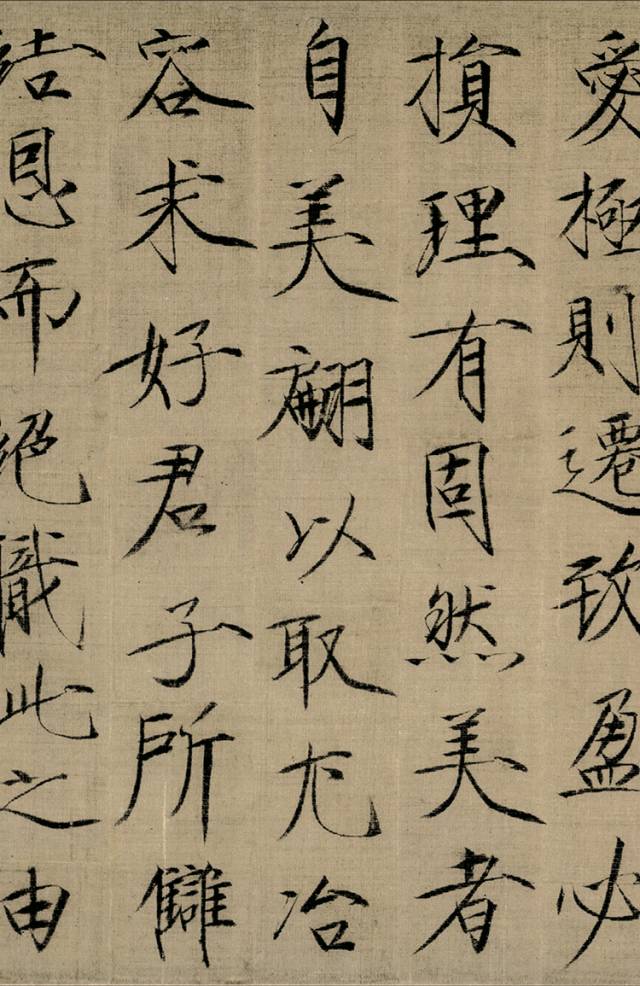 愛極則遷致盈必
損理有固然美者
自美翩以取尤冶
容求好君子所讎
結恩而絕職此之由